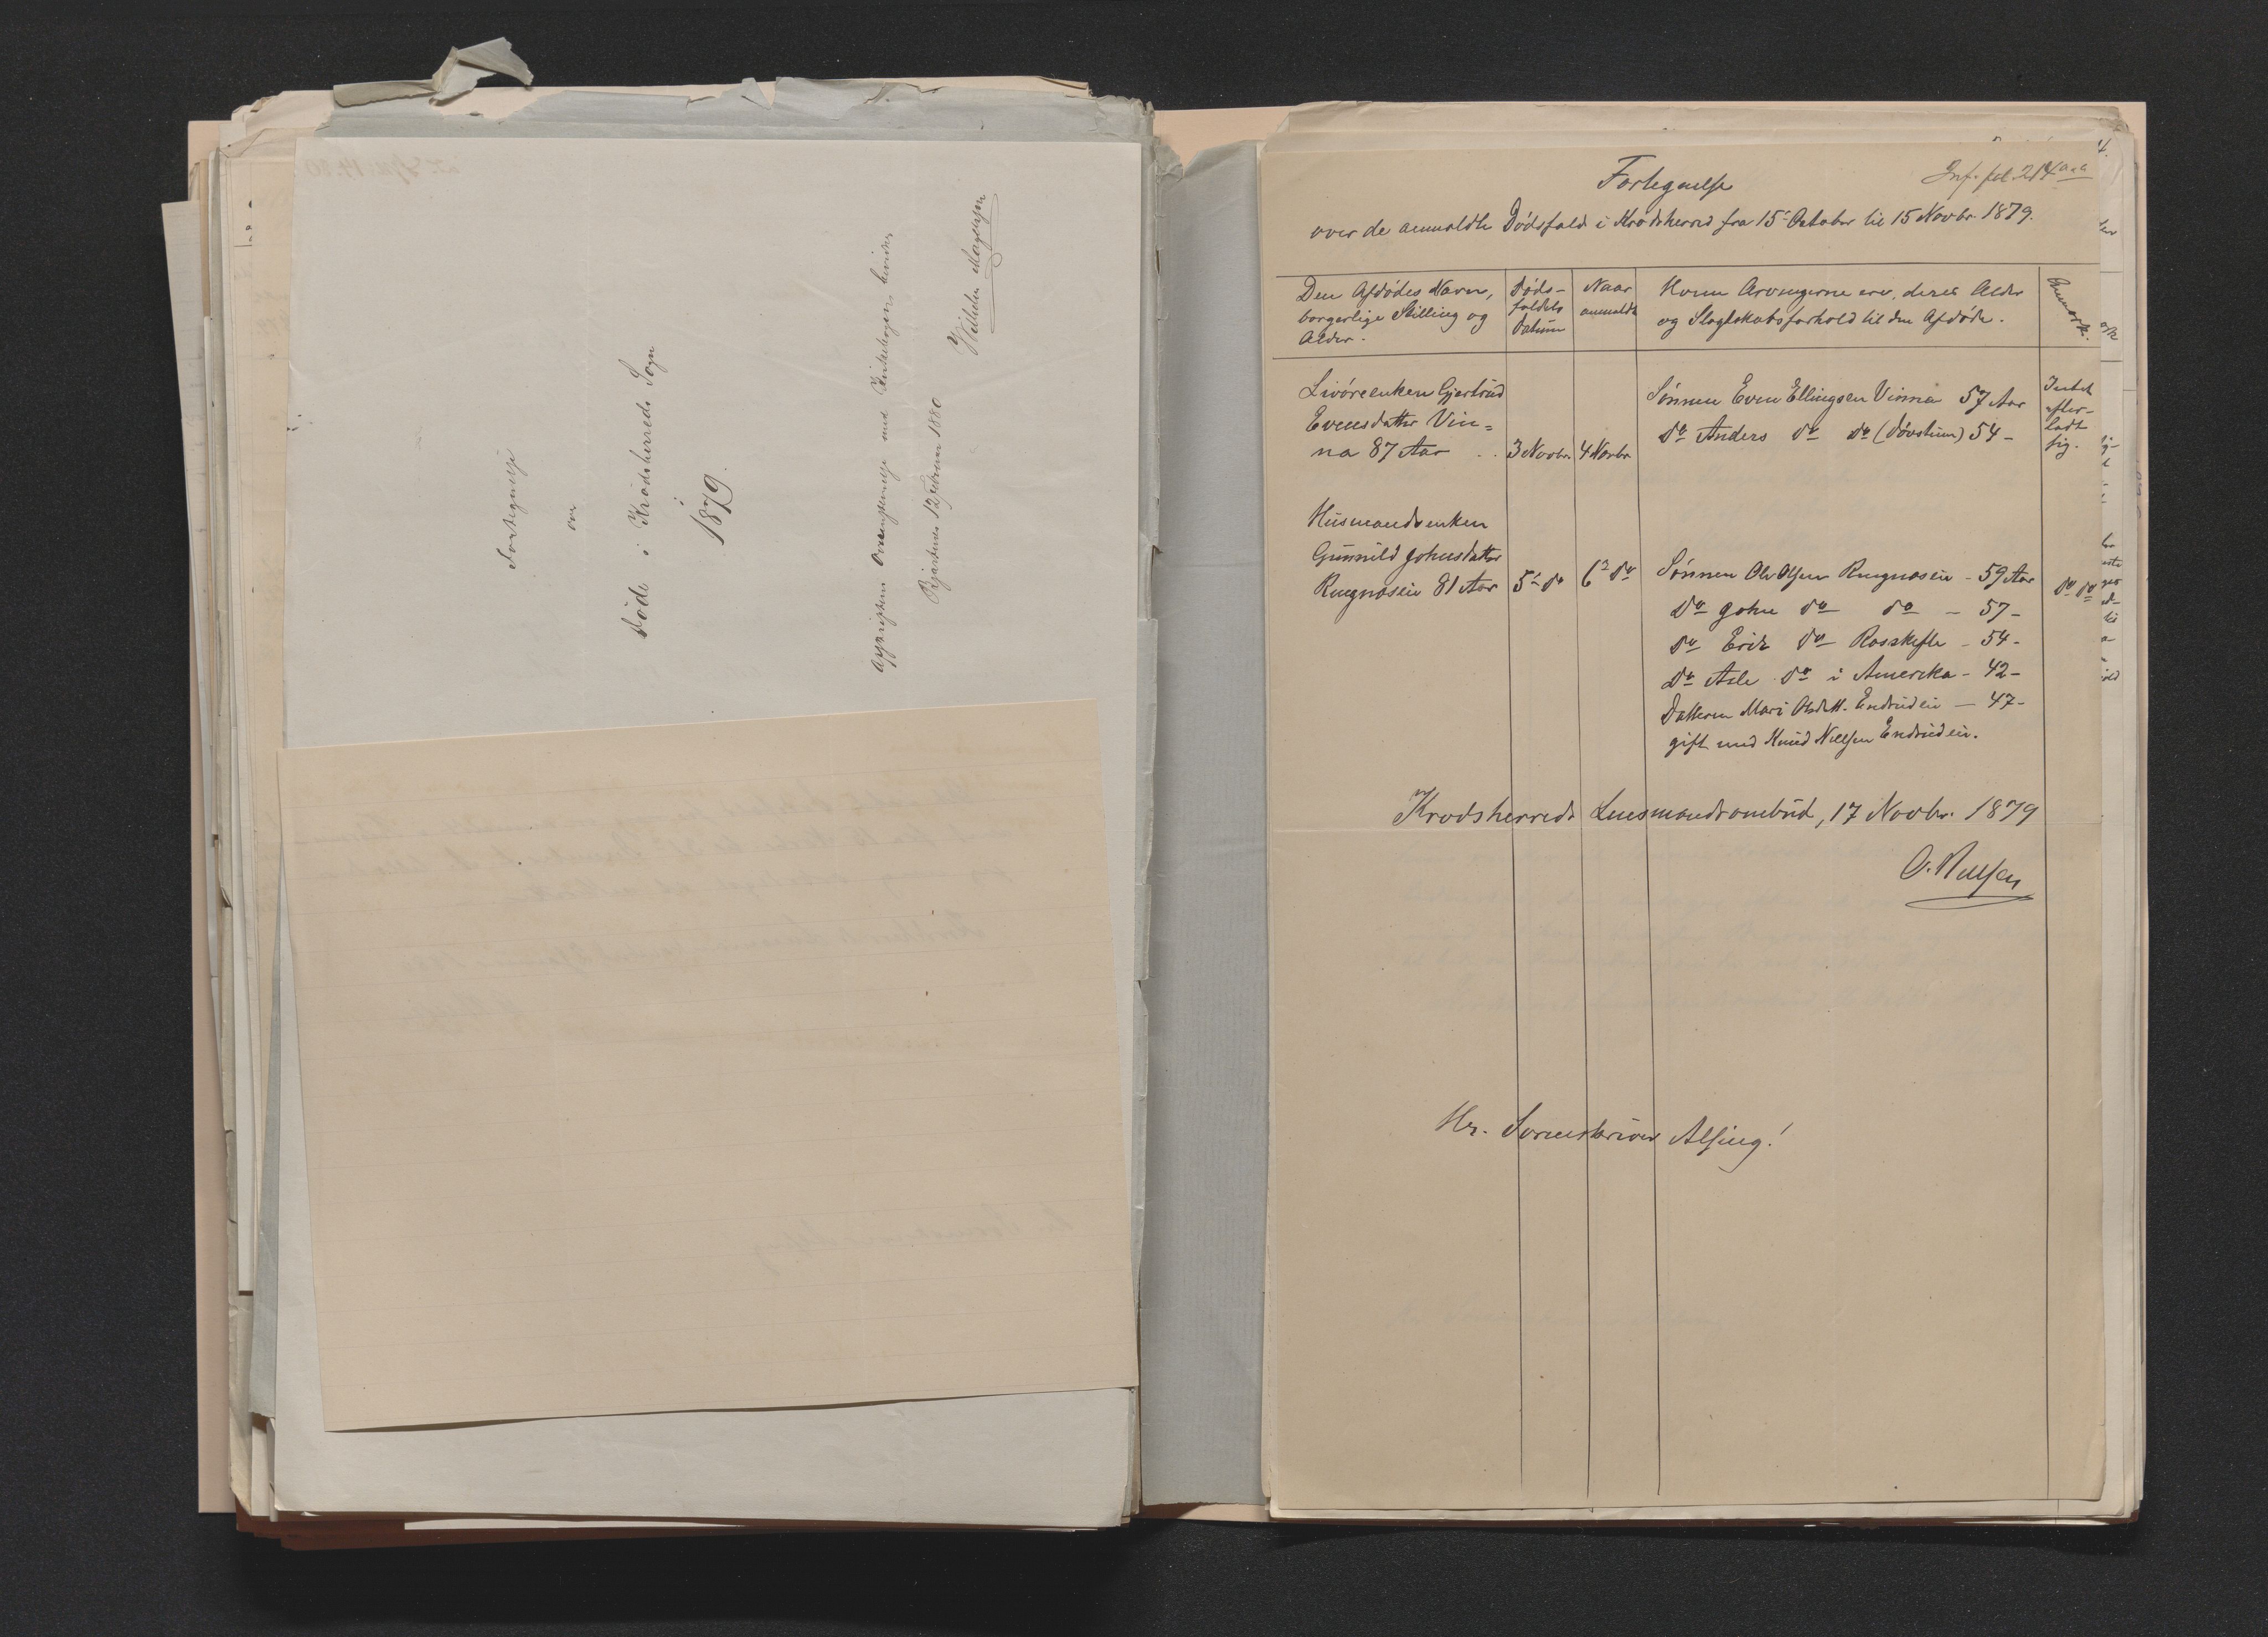 Fortegnelse
over
Døde i Krødsherreds Sogn
i
1879.
Afskriftens Overenstemmelse med Kirkebogen bevidnes
12 Februar 1880
Fortegnelse
Inf. fol. 214
over de anmeldte Dødsfald i Krødsherred fra 15de October til 15 Novbr. 1879.
Den Afdødes Navn,
borgerlige Stilling og
Alder.
Døds-
faldets
Datum
Naar
anmeldt
Hvem Arvingerne ere, deres Alder
og Slægtskabsforhold til den Afdøde.
Anmærk.
Livøreenken Gjertrud
Evensdatter Vin=
na 87 Aar
3 Novbr.
4 Novbr.
Sønnen Even Ellingsen Vinna 57 Aar
do Anders do do (døvstum) 54 -
Intet
efter-
ladt
sig.
Husmandsenken
Gunnild Johnsdatter
Ringnæseie 81 Aar
5te do
6te do
Sønnen Ole Olsen Ringnæseie - 59 Aar
do do
do John do do - 57 -
do Erik do - 54 -
do Asle do i Amerika - 42 -
Datteren Mari Olsdtt. Endrudeie - 47 -
gift med Knud Nilsen Endrudeie.
Krødsherreds Lensmandsombud, 17 Novbr. 1879
O. Nilsen
Hr. Sorenskriver Alsing!